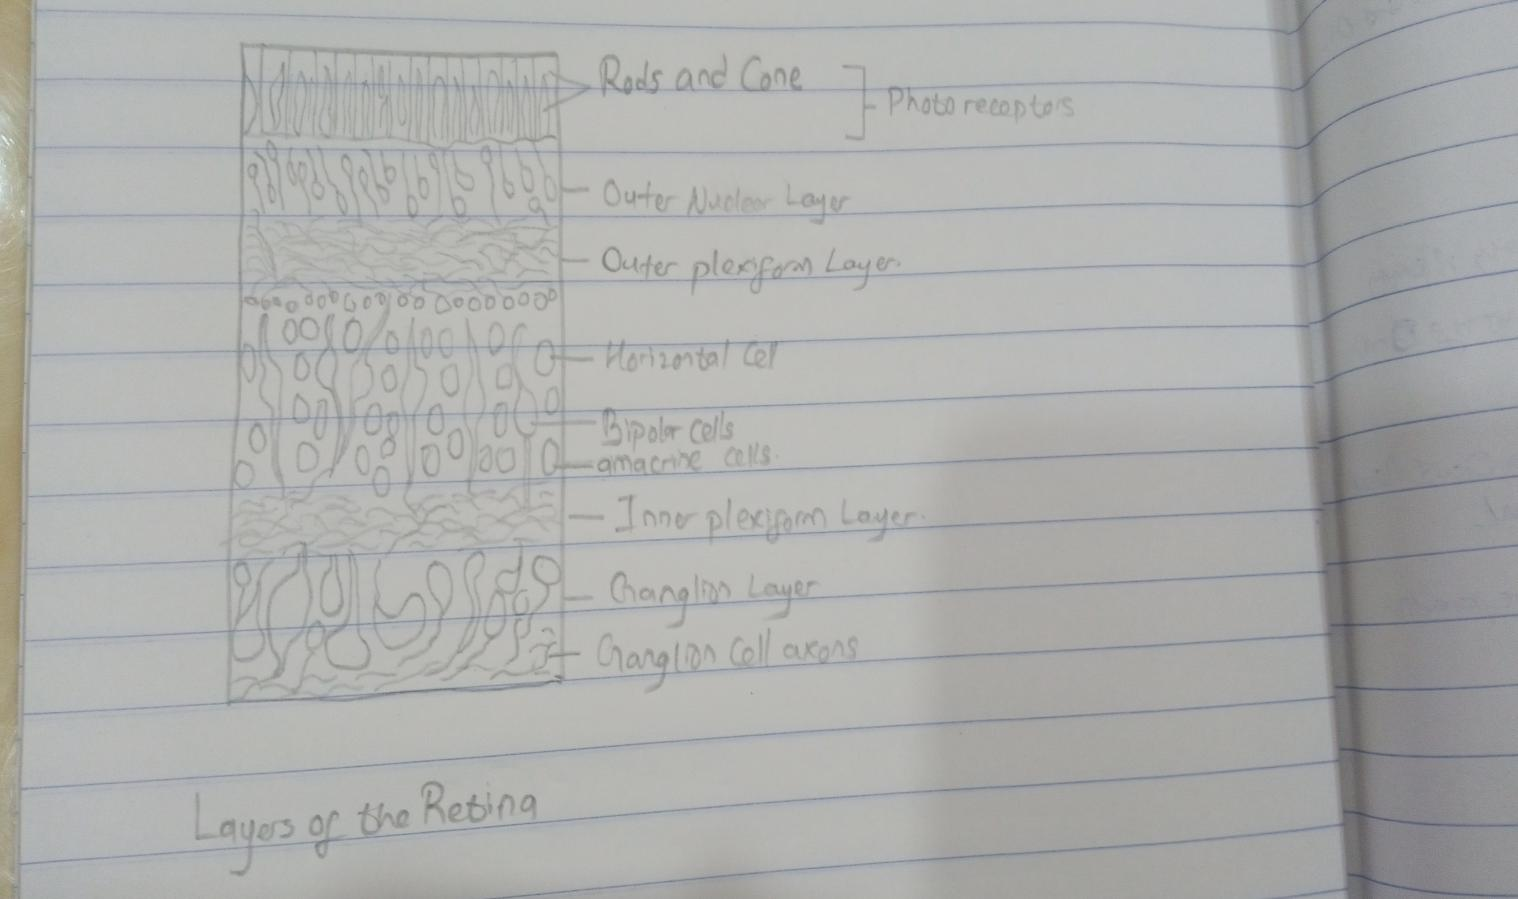 Rods and Cone
Photoreceptors
Outer Nuclear Layer
Outer plexiform Layer.
Horizontal Cell
Bipolar cells
amacrine cells.
Inner plexiform Layer.
Ganglion Layer
Ganglion Cell axons
Layers of the Retina